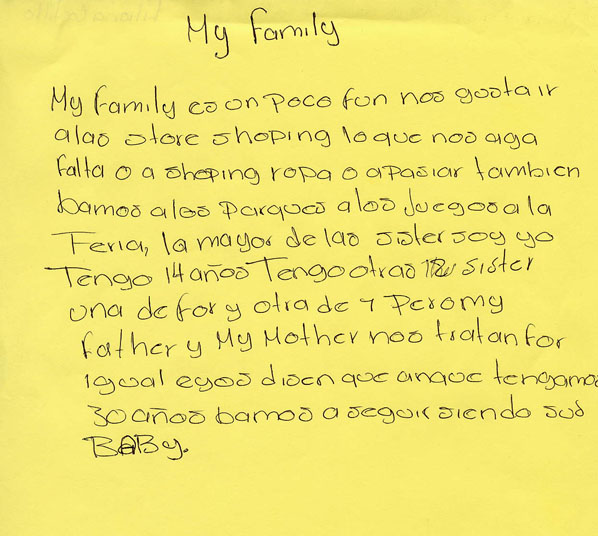 My Family
My family es un poco fun nos gusta ir
a las store shoping lo que nos aiga
falta o a shoping ropa o apasiar tambien
bamos a los parques a los juegos a la
Feria, la mayor de las sister soy yo
Tengo 14 años Tengo otras sister
una de for y otra de 7 Pero my
father y My Mother nos tratan for
igual eyos disen que anque tengamos
30 años bamos a seguir siendo sus
BABy.